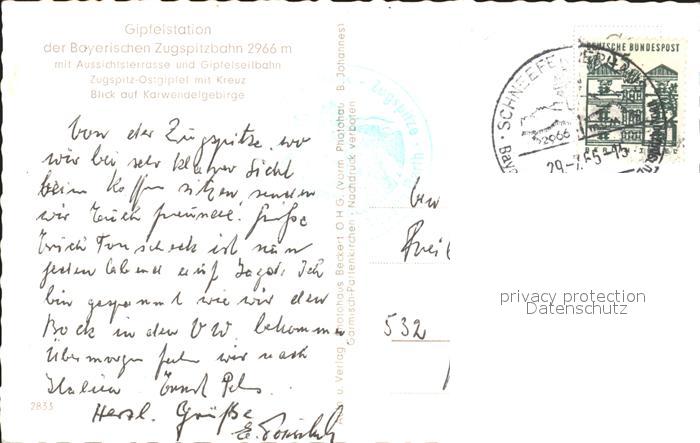 Gipfelstation
der Bayerischen Zugspitzbahn 2966 m
mit Aussichtsterrasse und Gipfelseilbahn
Zugspitz-Ostgipfel mit Kreuz
Blick auf Karwendelgebirge
Von der Zugspitze, wo
wir bei sehr klarer Sicht
beim Kaffee sitzen, senden
wir Euch freundl. Grüße
Erich ist nun
jeden Abend auf Jagd. Ich
bin gespannt wie wir den
Bock in den VW bekommen
Übermorgen fahren wir nach
Italien Ernst
Herzl. Grüße
2833
Aufn. u. Verlag Photohaus Beckert OHG. (vorm. Photohaus B. Johannes)
Garmisch-Partenkirchen · Nachdruck verboten
Zugspitze
SCHNEEFERNERHAUS
2966
29.-7.65-15
DEUTSCHE BUNDESPOST
532
privacy protection
Datenschutz